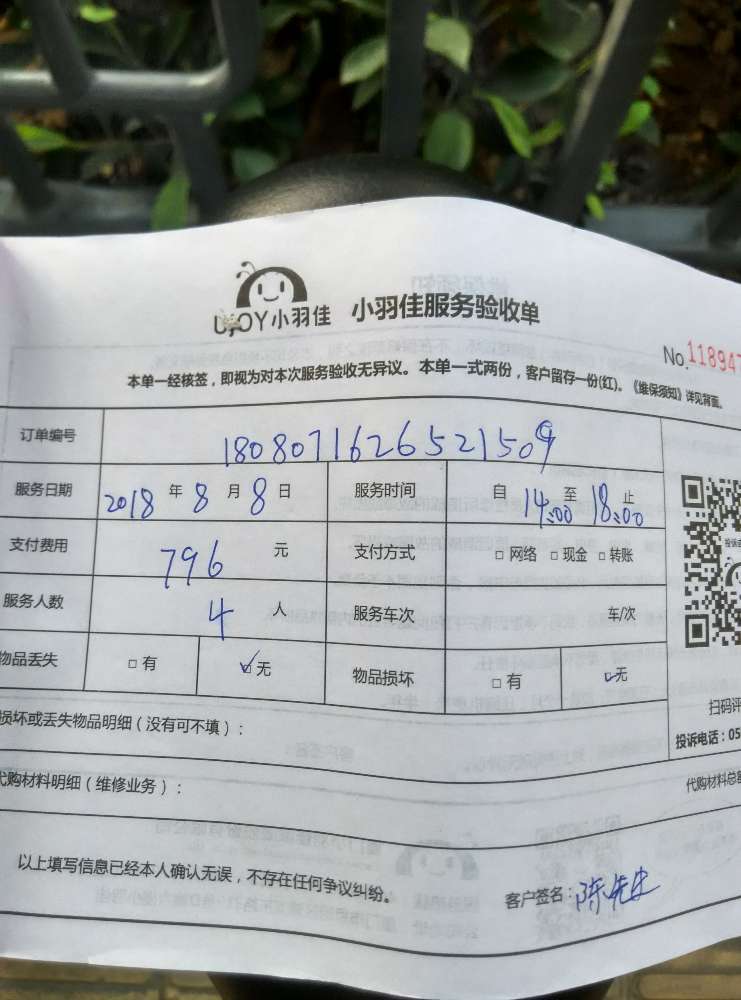 UJOY小羽佳 小羽佳服务验收单
No.118947
本单一经核签，即视为对本次服务验收无异议。本单一式两份，客户留存一份(红)。《维保须知》详见背面。
订单编号 1808071626521509
服务日期 2018 年 8 月 8 日 服务时间 自 14:00 至 18:00 止
支付费用 796 元 支付方式 □ 网络 □ 现金 □ 转账
服务人数 4 人 服务车次 车/次
物品丢失 □ 有 ☑ 无 物品损坏 □ 有 ☑ 无
损坏或丢失物品明细（没有可不填）：
扫码评
投诉电话：05
代购材料明细（维修业务）： 代购材料总
以上填写信息已经本人确认无误，不存在任何争议纠纷。
客户签名：陈先生